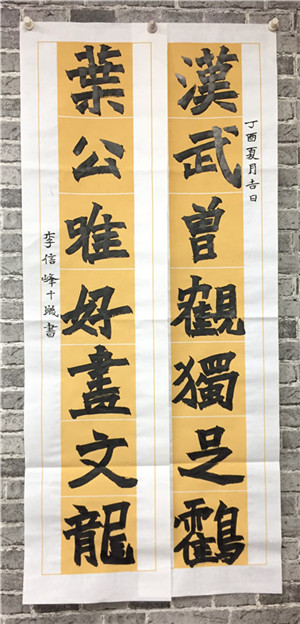 丁酉夏月吉日
漢武曾觀獨足鸖
葉公唯好畫文龍
李信峰十歲書